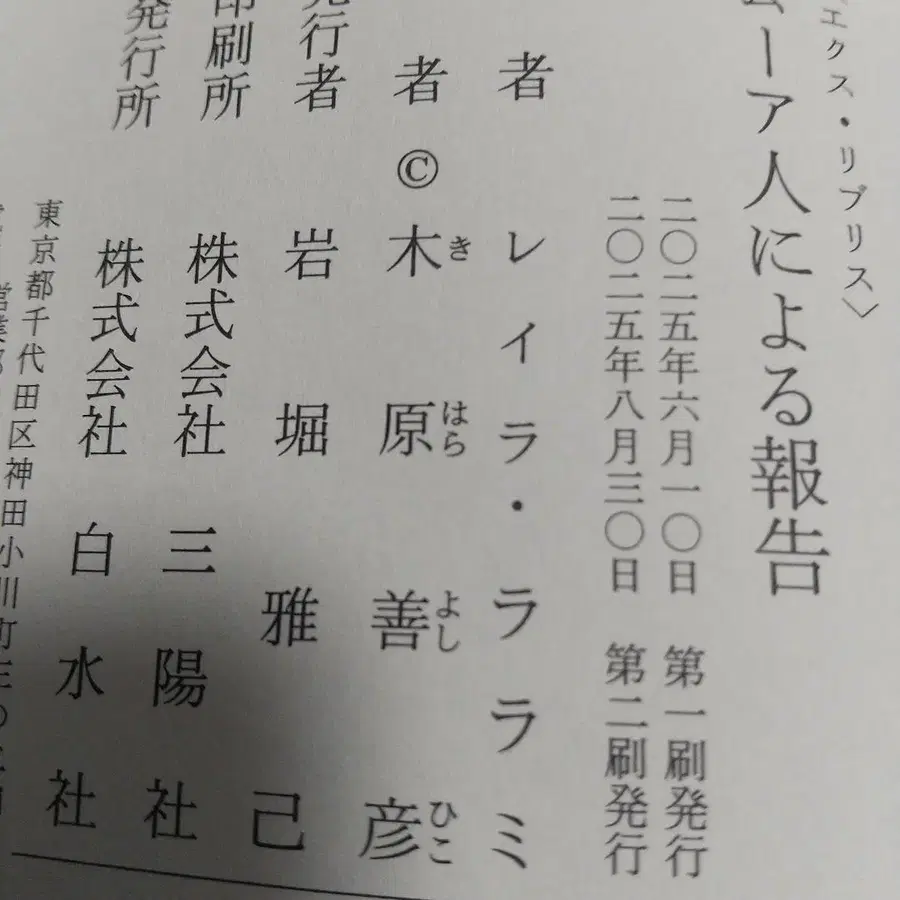 エクス・リブリス〉
ムーア人による報告
二〇二五年六月一〇日 第一刷発行
二〇二五年八月三〇日 第二刷発行
者 レイラ・ララミ
者 © 木原善彦
き はら よし ひこ
発行者 岩堀雅己
印刷所 株式会社 三陽社
発行所 株式会社 白水社
東京都千代田区神田小川町三の二四
営業部